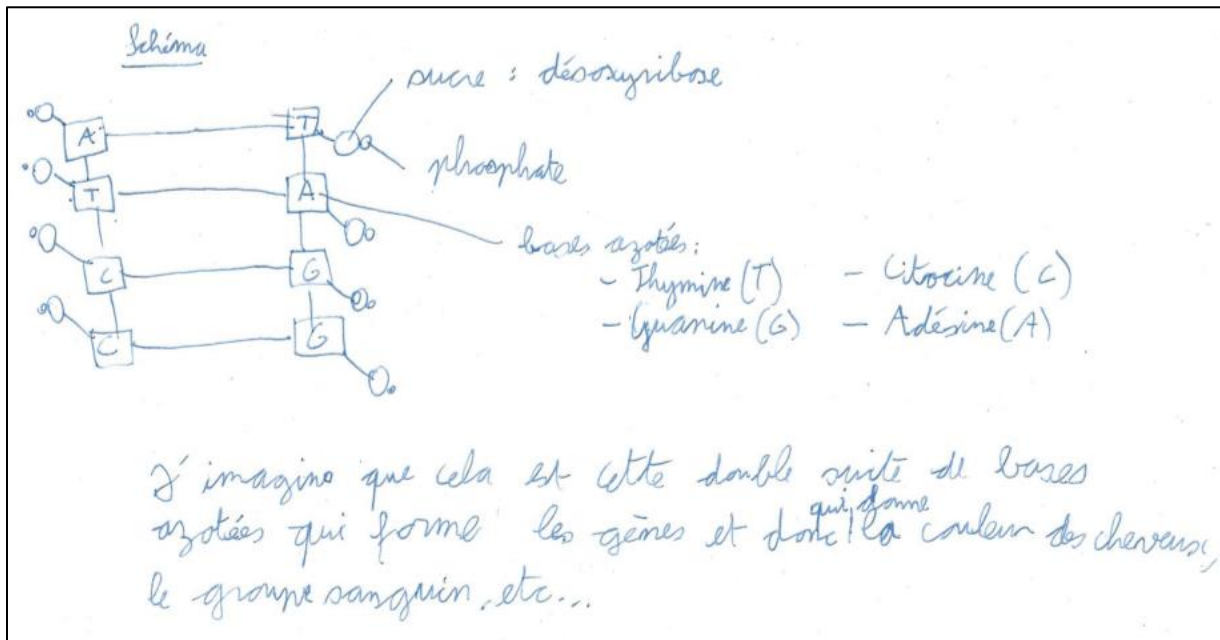 Schéma
sucre : désoxyribose
A T
phosphate
T A
bases azotées :
- Thymine (T) - Citosine (C)
C G
- Guanine (G) - Adésine (A)
C G
J'imagine que cela est cette double suite de bases
azotées qui forme les gènes et donc qui donne la couleur des cheveux,
le groupe sanguin, etc...